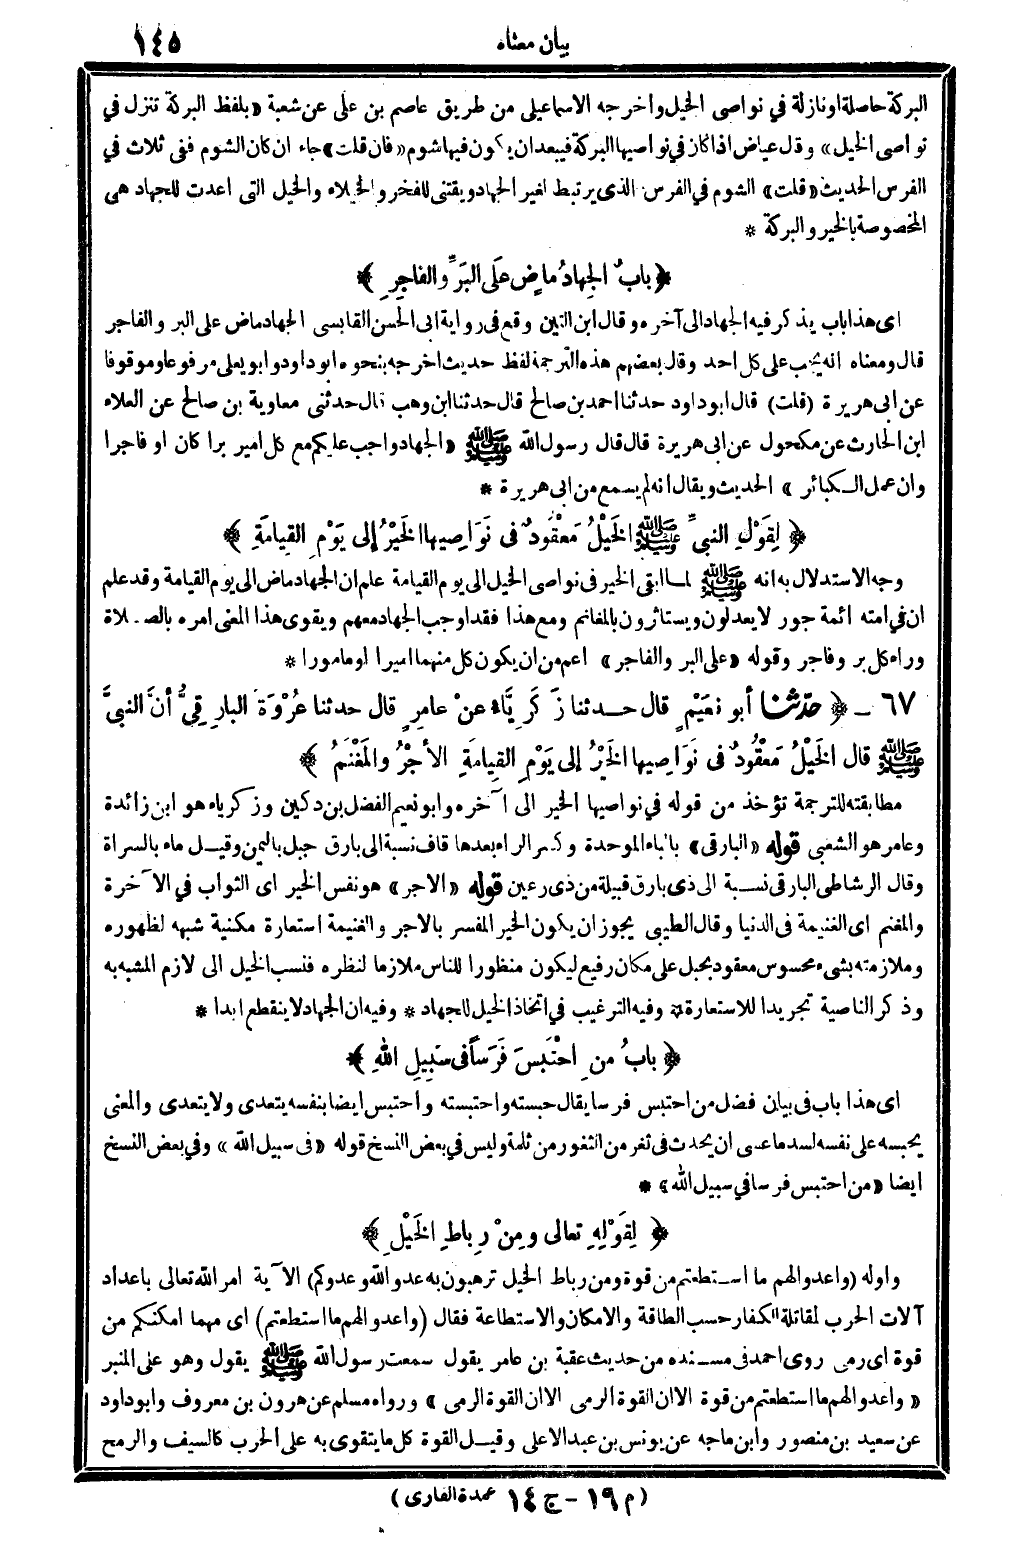 بيان معناه
١٤٥
البركة حاصلة او نازلة في نواصي الخيل واخرجه الاسماعيلي من طريق عاصم بن على عن شعبة «بلفظ البركة تنزل في
نواصى الخيل» وقال عياض اذا كان في نواصيها البركة فيبعد ان يكون فيها شوم «فان قلت» جاء ان كان الشوم ففى ثلاث في
الفرس الحديث «قلت» الشوم في الفرس الذى يرتبط لغير الجهاد ويقتنى للفخر والخيلاء والخيل التى اعدت للجهاد هى
المخصوصة بالخير والبركة *
﴿ بابٌ الجِهادُ ماضٍ عَلَى البَرِّ والفاجِرِ ﴾
اى هذا باب يذكر فيه الجهاد الى آخره وقال ابن التين وقع في رواية ابى الحسن القابسى الجهاد ماض على البر والفاجر
قال ومعناه انه يجب على كل احد وقال بعضهم هذه الترجمة لفظ حديث اخرجه بنحوه ابو داود وابو يعلى مرفوعا وموقوفا
عن ابى هريرة (قلت) قال ابو داود حدثنا احمد بن صالح قال حدثنا ابن وهب قال حدثنى معاوية بن صالح عن العلاء
ابن الحارث عن مكحول عن ابى هريرة قال قال رسول الله ﷺ «الجهاد واجب عليكم مع كل امير برا كان او فاجرا
وان عمل الكبائر» الحديث ويقال انه لم يسمع من ابى هريرة *
﴿ لِقَوْلِ النبيِّ ﷺ الخَيْلُ مَعْقُودٌ في نَوَاصِيها الخَيْرُ إلى يَوْمِ القيامَةِ ﴾
وجه الاستدلال به انه ﷺ لما ابقى الخير في نواصى الخيل الى يوم القيامة علم ان الجهاد ماض الى يوم القيامة وقد علم
ان في امته ائمة جور لا يعدلون ويستاثرون بالمغانم ومع هذا فقد اوجب الجهاد معهم ويقوى هذا المعنى امره بالصلاة
وراء كل بر وفاجر وقوله «على البر والفاجر» اعم من ان يكون كل منهما اميرا او مامورا *
٦٧ - ﴿ حدّثنا أبو نعَيْمٍ قال حدثنا زَكَرِيَّاءُ عنْ عامِرٍ قال حدثنا عُرْوَةَ البارِقِيُّ أنَّ النبيَّ
ﷺ قال الخَيْلُ مَعْقُودٌ في نَوَاصِيها الخَيْرُ إلى يَوْمِ القِيامَةِ الأجْرُ والمَغْنَمُ ﴾
مطابقته للترجمة تؤخذ من قوله في نواصيها الخير الى آخره وابو نعيم الفضل بن دكين وزكرياء هو ابن زائدة
وعامر هو الشعبى قوله «البارقى» بالباء الموحدة وكسر الراء بعدها قاف نسبة الى بارق جبل باليمن وقيل ماء بالسراة
وقال الرشاطى البارقى نسبة الى ذى بارق قبيلة من ذى رعين قوله «الاجر» هو نفس الخير اى الثواب في الآخرة
والمغنم اى الغنيمة فى الدنيا وقال الطيبى يجوز ان يكون الخير المفسر بالاجر والغنيمة استعارة مكنية شبهه لظهوره
وملازمته بشىء محسوس معقود بحبل على مكان رفيع ليكون منظورا للناس ملازما لنظره فنسب الخيل الى لازم المشبه به
وذكر الناصية تجريدا للاستعارة * وفيه الترغيب في اتخاذ الخيل للجهاد * وفيه ان الجهاد لا ينقطع ابدا *
﴿ بابُ منِ احْتَبَسَ فَرَساً في سَبِيلِ اللهِ ﴾
اى هذا باب فى بيان فضل من احتبس فرسا يقال حبسته واحتبسته واحتبس ايضا بنفسه يتعدى ولا يتعدى والمعنى
يحبسه على نفسه لسد ما عسى ان يحدث فى ثغر من الثغور من ثلمة وليس في بعض النسخ قوله «فى سبيل الله» وفي بعض النسخ
ايضا «من احتبس فرسا في سبيل الله» *
﴿ لِقَوْلِهِ تعالى ومِنْ رِباطِ الخَيْلِ ﴾
واوله (واعدوا لهم ما استطعتم من قوة ومن رباط الخيل ترهبون به عدو الله وعدوكم) الآية امر الله تعالى باعداد
آلات الحرب لمقاتلة الكفار حسب الطاقة والامكان والاستطاعة فقال (واعدوا لهم ما استطعتم) اى مهما امكنكم من
قوة اى رمى روى احمد فى مسنده من حديث عقبة بن عامر يقول سمعت رسول الله ﷺ يقول وهو على المنبر
«واعدوا لهم ما استطعتم من قوة الا ان القوة الرمى الا ان القوة الرمى» ورواه مسلم عن هرون بن معروف وابو داود
عن سعيد بن منصور وابن ماجه عن يونس بن عبد الاعلى وقيل القوة كل ما يتقوى به على الحرب كالسيف والرمح
(م ١٩ - ج ١٤ عمدة القارى)